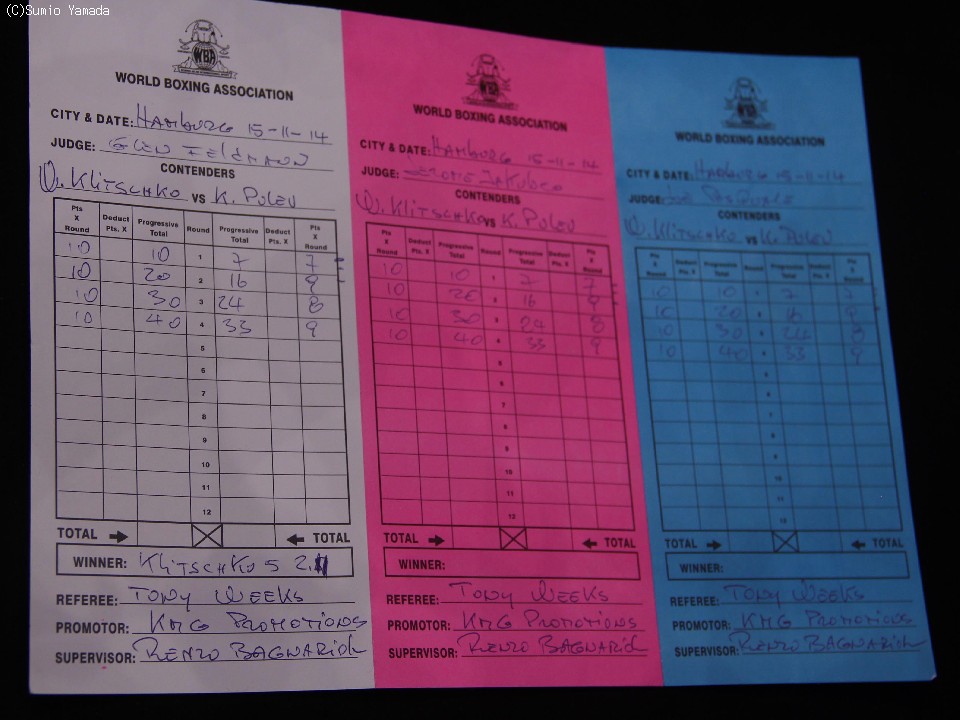 (C)Sumio Yamada
WBA
WORLD BOXING ASSOCIATION
CITY & DATE: HAMBURG 15-11-14
JUDGE: GLEN FELDMANN
CONTENDERS
W. KLITSCHKO VS K. PULEV
Pts X Round Deduct Pts. X Progressive Total Round Progressive Total Deduct Pts. X Pts X Round
10 10 1 7 7
10 20 2 16 9
10 30 3 24 8
10 40 4 33 9
5
6
7
8
9
10
11
12
TOTAL TOTAL
WINNER: KLITSCHKO 5 2.
REFEREE: TONY WEEKS
PROMOTOR: KMG PROMOTIONS
SUPERVISOR: RENZO BAGNARIOL
WBA
WORLD BOXING ASSOCIATION
CITY & DATE: HAMBURG 15-11-14
JUDGE: JEROME JAKUBCO
CONTENDERS
W. KLITSCHKO VS K. PULEV
Pts X Round Deduct Pts. X Progressive Total Round Progressive Total Deduct Pts. X Pts X Round
10 10 1 7 7
10 20 2 16 9
10 30 3 24 8
10 40 4 33 9
5
6
7
8
9
10
11
12
TOTAL TOTAL
WINNER:
REFEREE: TONY WEEKS
PROMOTOR: KMG PROMOTIONS
SUPERVISOR: RENZO BAGNARIOL
WORLD BOXING ASSOCIATION
CITY & DATE: HAMBURG 15-11-14
JUDGE:
CONTENDERS
W. KLITSCHKO VS K. PULEV
Pts X Round Deduct Pts. X Progressive Total Round Progressive Total Deduct Pts. X Pts X Round
10 10 1 7 7
10 20 2 16 9
10 30 3 24 8
10 40 4 33 9
5
6
7
8
9
10
11
12
TOTAL TOTAL
WINNER:
REFEREE: TONY WEEKS
PROMOTOR: KMG PROMOTIONS
SUPERVISOR: RENZO BAGNARIOL